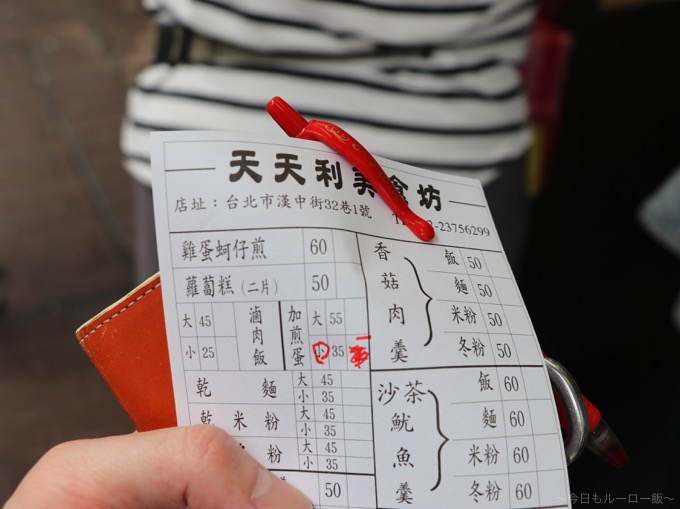 天天利美食坊
店址：台北市漢中街32巷1號
2-23756299
雞蛋蚵仔煎 60
蘿蔔糕（二片） 50
滷肉飯 大 45
小 25
加煎蛋 大 55
小 35
乾麵 大 45
小 35
乾米粉 大 45
小 35
粉 大 45
小 35
50
香菇肉羹
飯 50
麵 50
米粉 50
冬粉 50
沙茶魷魚羹
飯 60
麵 60
米粉 60
冬粉 60
～今日もルーロー飯～